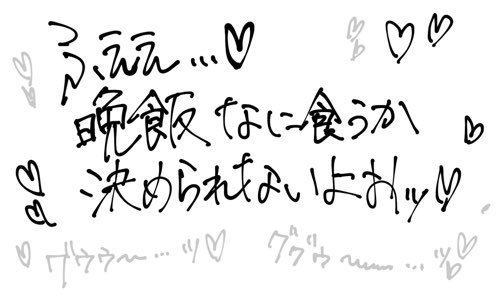 ふ、ふええ…♡
晩飯なに食うか
決められないよおッ♡
♡グゥゥ〜…ッ♡ グゥゥ〜…ッ♡